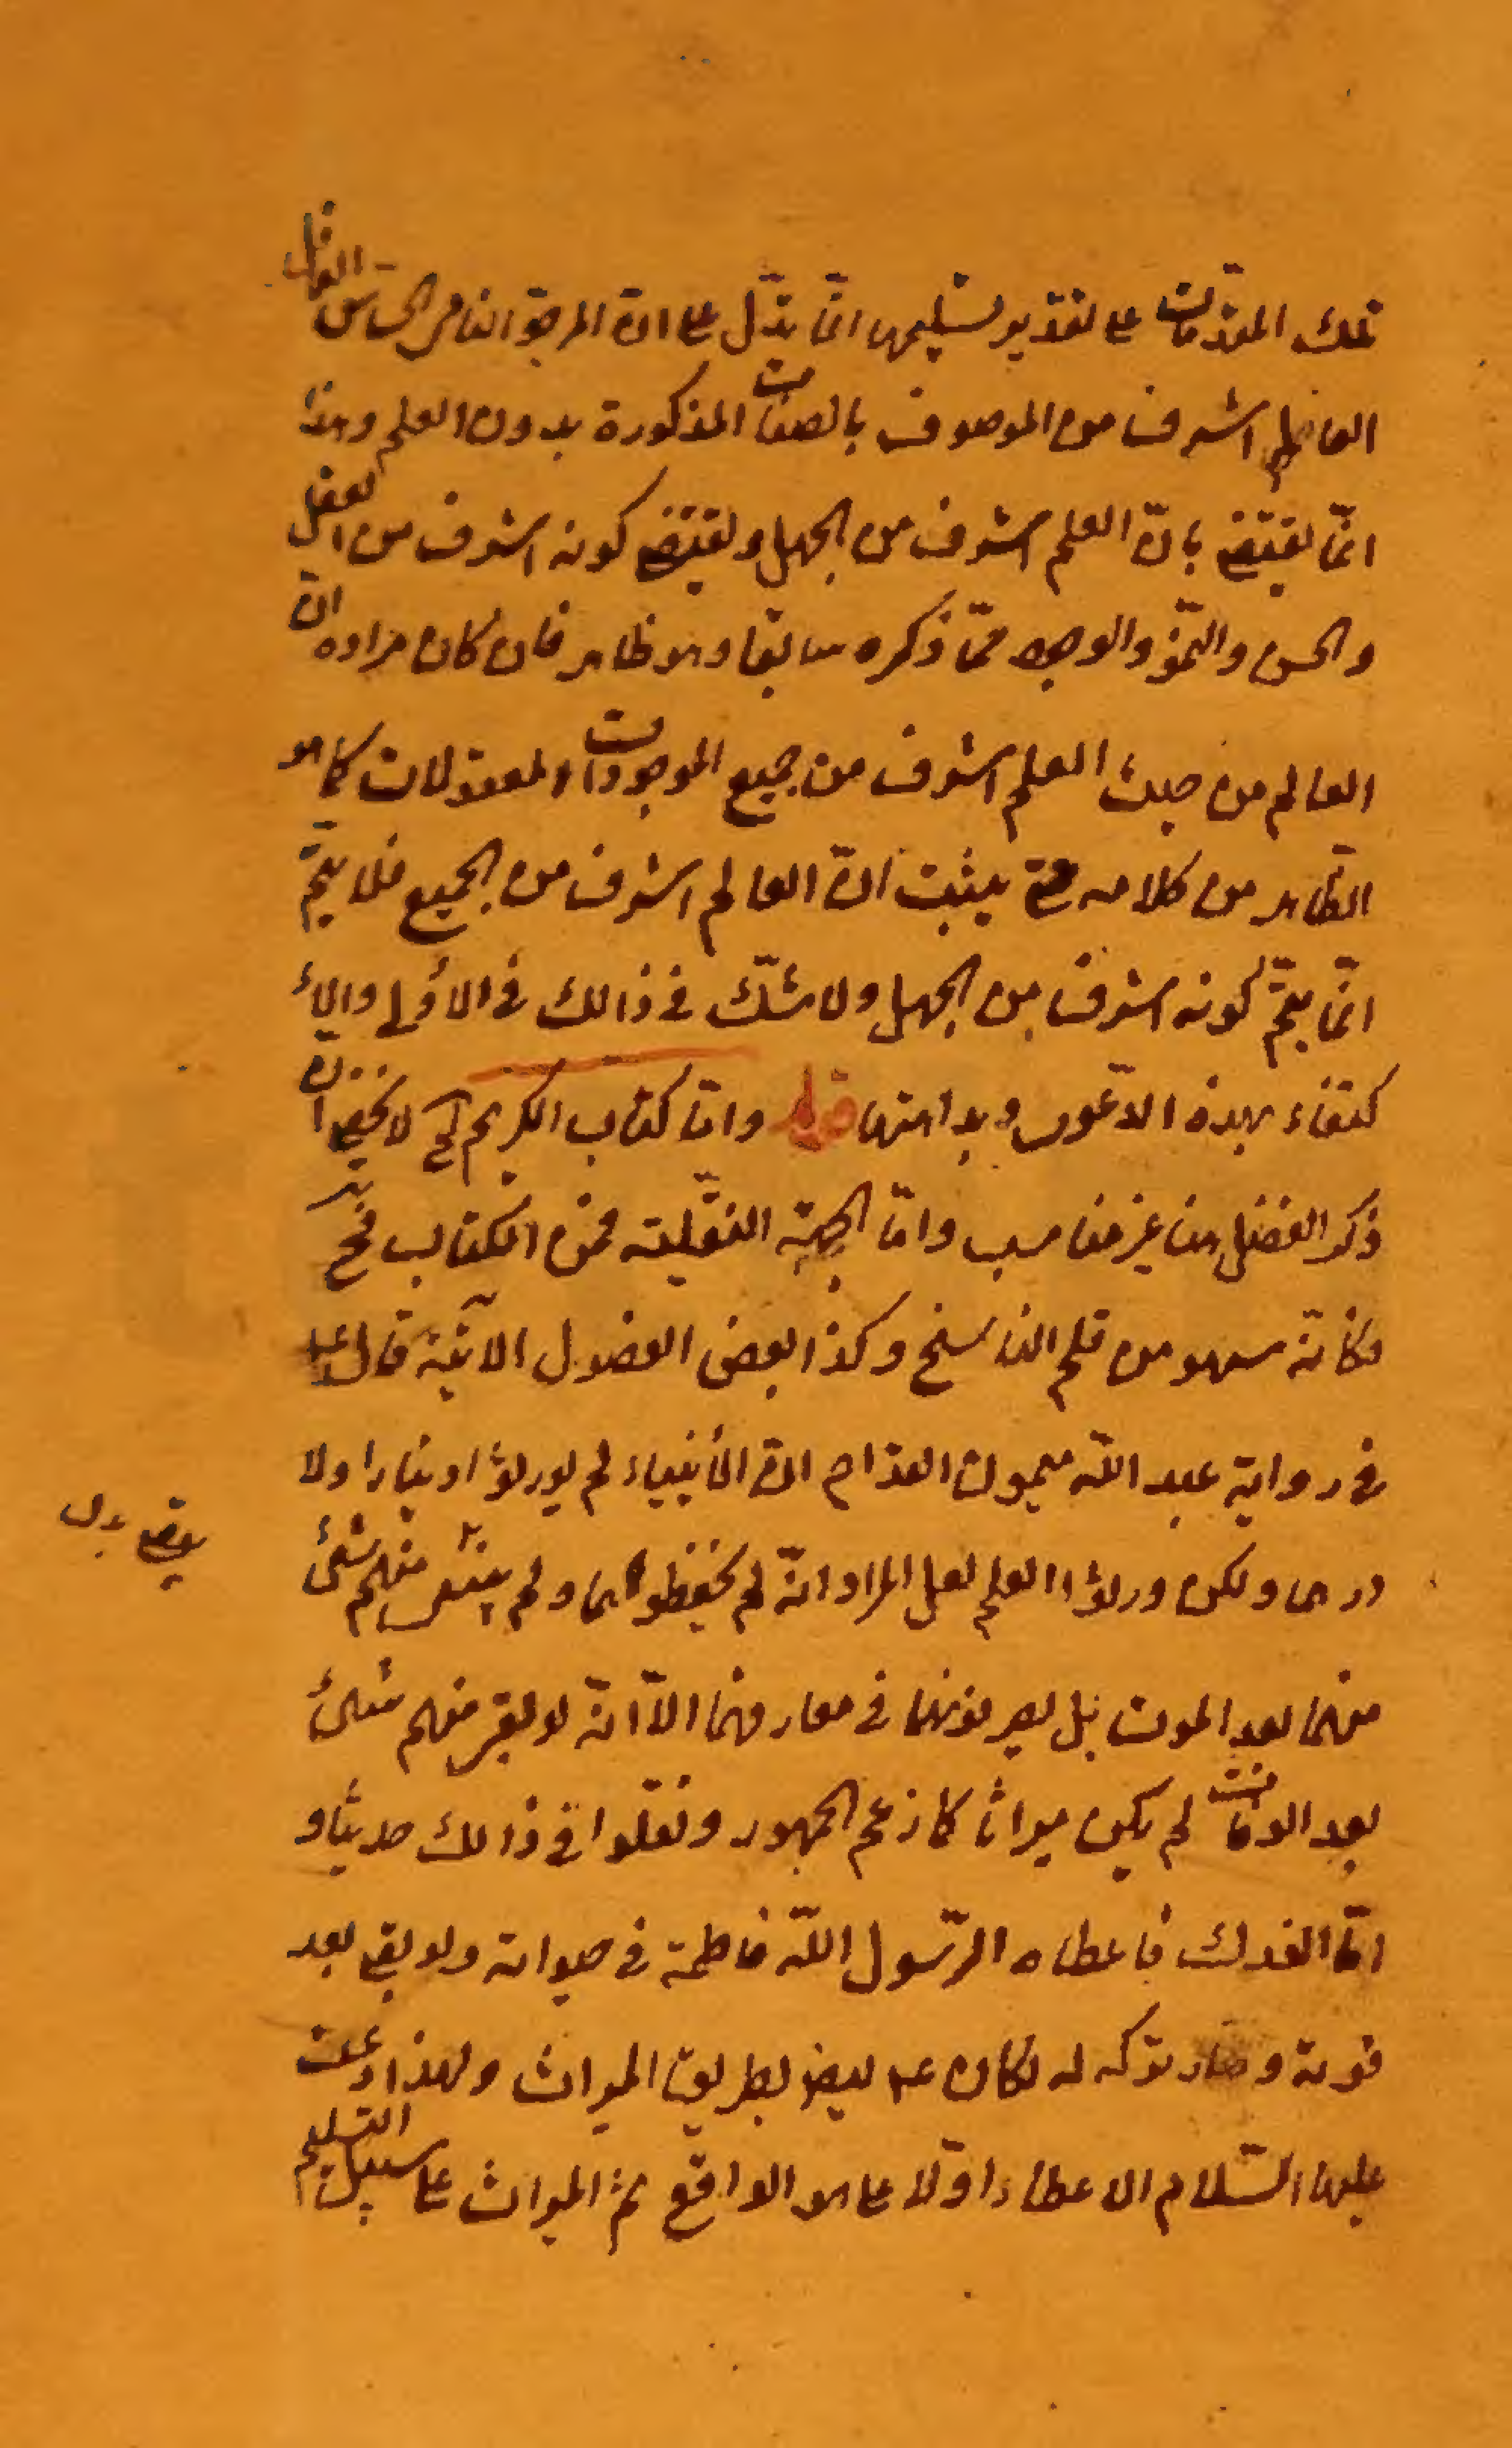 تلك المقدّمات على تقدير تسليمها انّما يدّل على انّ الموجود النامى الحسّاس العاقل
العالم اشرف من الموصوف بالصفات المذكورة بدون العلم وهذا
انّما يقتضى بانّ العلم اشرف من الجهل ولا يقتضى كونه اشرف من العقل
والحس والنموّ والوجود ممّا ذكره سابقا وهو ظاهر فان كان مراده انّ
العالم من حيث العلم اشرف من جميع الموجودات والمعقولات كما هو
الظاهر من كلامه حتى يثبت انّ العالم اشرف من الجميع فلا يتمّ
انّما يتمّ كونه اشرف من الجهل ولا شكّ فى ذالك فى الأولى والا
كتفاء بهذه الدّعوى وبداهتها قوله وامّا كتاب الكريم الخ لا يخفى انّ
ذكر الفضل هنا غير مناسب وامّا الجهة النقليّة فمن الكتاب
فكانّه سهو من قلم الناسخ وكذا بعض الفصول الآتية قال
فى رواية عبد اللّه ميمون القداح انّ الأنبياء لم يورثوا دينارا ولا
درهما ولكن ورثوا العلم لعل المراد انّه لم يحفظوهما ولم يبق منهم شئ
منهما بعد الموت بل يصرفونهما فى مصارفهما الّا انّه لو بقى منهم شئ
بعد الوفات لم يكن ميراثا كما زعم الجمهور ونقلوا فى ذالك حديثا و
امّا الفدك فاعطاه الرّسول اللّه فاطمة فى حيواته ولو بقى بعد
فوته وصار تركه له لكان ايضا بطريق الميراث ولهذا ادعت
عليها السّلام الاعطاء اوّلا على هو الواقع ثمّ الميراث على سبيل التسليم